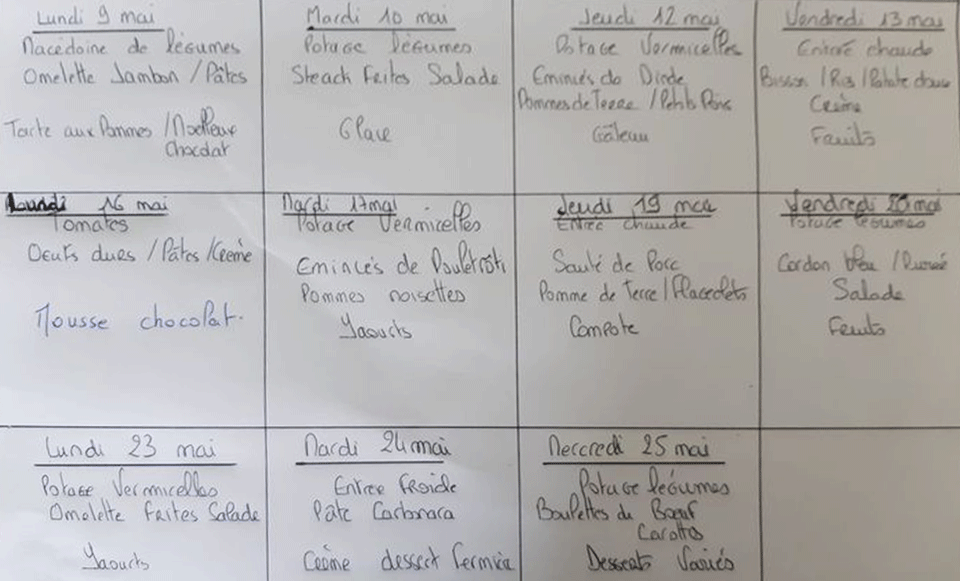 Lundi 9 mai
Macédoine de légumes
Omelette Jambon / Pâtes
Tarte aux Pommes / Moelleux
Chocolat
Mardi 10 mai
Potage légumes
Steack Frites Salade
Glace
Jeudi 12 mai
Potage Vermicelles
Emincés de Dinde
Pommes de Terre / Petits Pois
Gâteau
Vendredi 13 mai
Entrée chaude
Poisson / Riz / Patate douce
Crème
Fruits
Lundi 16 mai
Tomates
Oeufs durs / Pâtes / Crème
Mousse chocolat.
Mardi 17 mai
Potage Vermicelles
Emincés de Pouletrôti
Pommes noisettes
Yaourts
Jeudi 19 mai
Entrée chaude
Sauté de Porc
Pomme de Terre / Flageolets
Compote
Vendredi 20 mai
Potage légumes
Cordon bleu / Purée
Salade
Fruits
Lundi 23 mai
Potage Vermicelles
Omelette Frites Salade
Yaourts
Mardi 24 mai
Entrée Froide
Pâte Carbonara
Crème dessert Fermière
Mercredi 25 mai
Potage légumes
Boulettes de Bœuf
Carottes
Desserts Variés